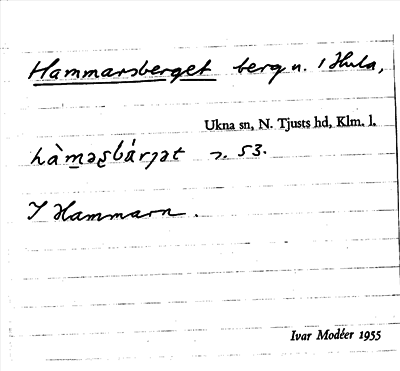 Hammarsberget berg n. i Hula,
Ukna sn, N. Tjusts hd, Klm. l.
hàmaʂbárjət 53.
I Hammarn.
Ivar Modéer 1955